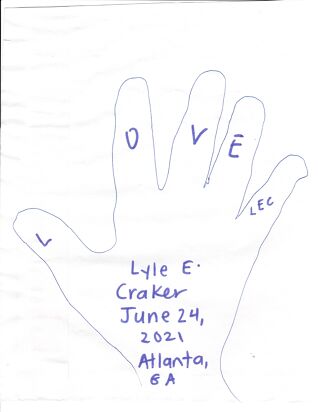 L O V E LEC
Lyle E.
Craker
June 24,
2021
Atlanta,
GA